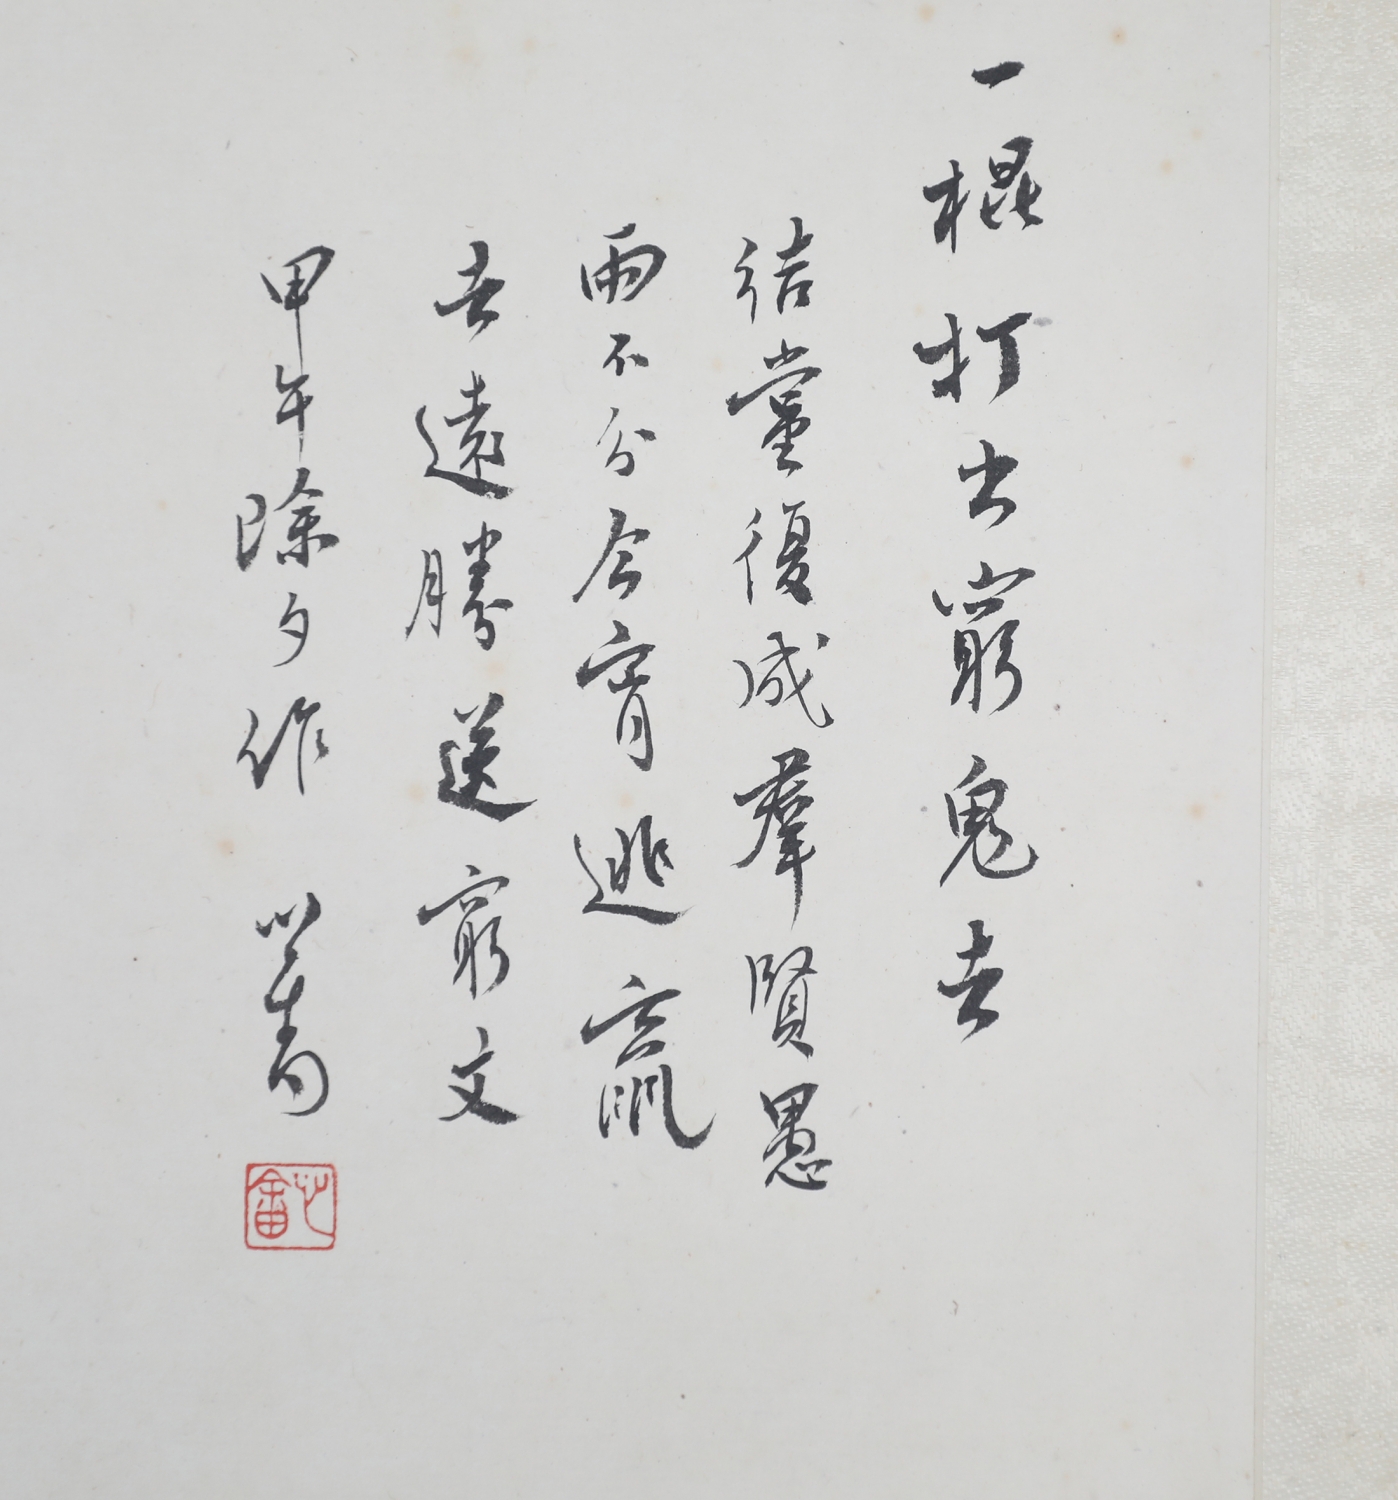 一棍打出窮鬼去
結黨復成羣賢愚
兩不分今宵逃
去遠勝送窮文
甲午除夕作 心畬